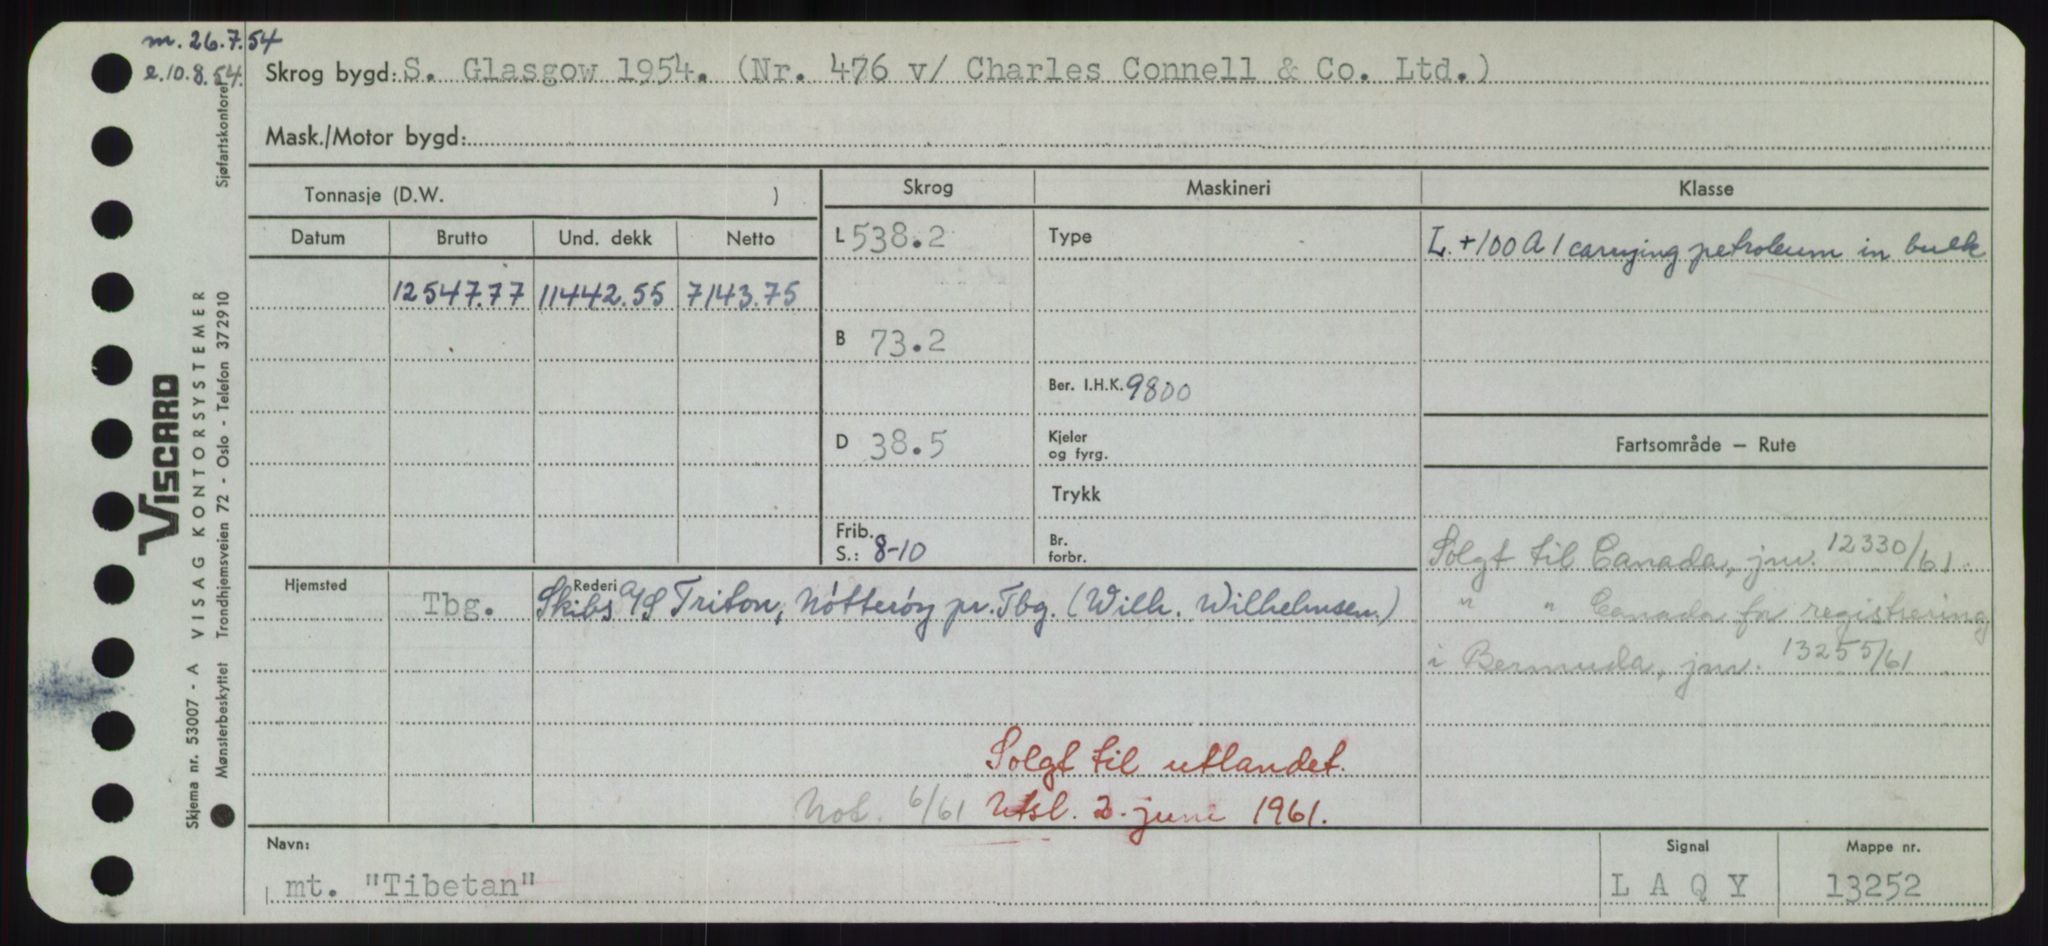 m. 26.7.54
e. 10.8.54.
Skrog bygd: S. Glasgow 1954. (Nr. 476 v/ Charles Connell & Co. Ltd.)
Mask./Motor bygd:
Tonnasje (D.W. )
Skrog
Maskineri
Klasse
Datum
Brutto
Und. dekk
Netto
L 538.2
Type
L. +100 A 1 carrying petroleum in bulk
12547.77 11442.55 7143.75
B 73.2
Ber. I.H.K. 9800
D 38.5
Kjeler
og fyrg.
Fartsområde — Rute
Trykk
Frib.
S.: 8-10
Br.
forbr.
Solgt til Canada, jnr. 12330/61.
" " Canada for registrering
i Bermuda, jnr. 13255/61
Hjemsted
Tbg.
Rederi
Skibs A/S Triton, Nötteröy pr. Tbg. (Wilh. Wilhelmsen.)
Solgt til utlandet.
Not. 6/61 Utsl. 2. juni 1961.
Navn:
mt. "Tibetan"
Signal
L A Q Y
Mappe nr.
13252
Skjema nr. 53007 - A VISAG KONTORSYSTEMER
Mønsterbeskyttet Trondhjemsveien 72 - Oslo - Telefon 372910
Sjøfartskontoret
VISCARD